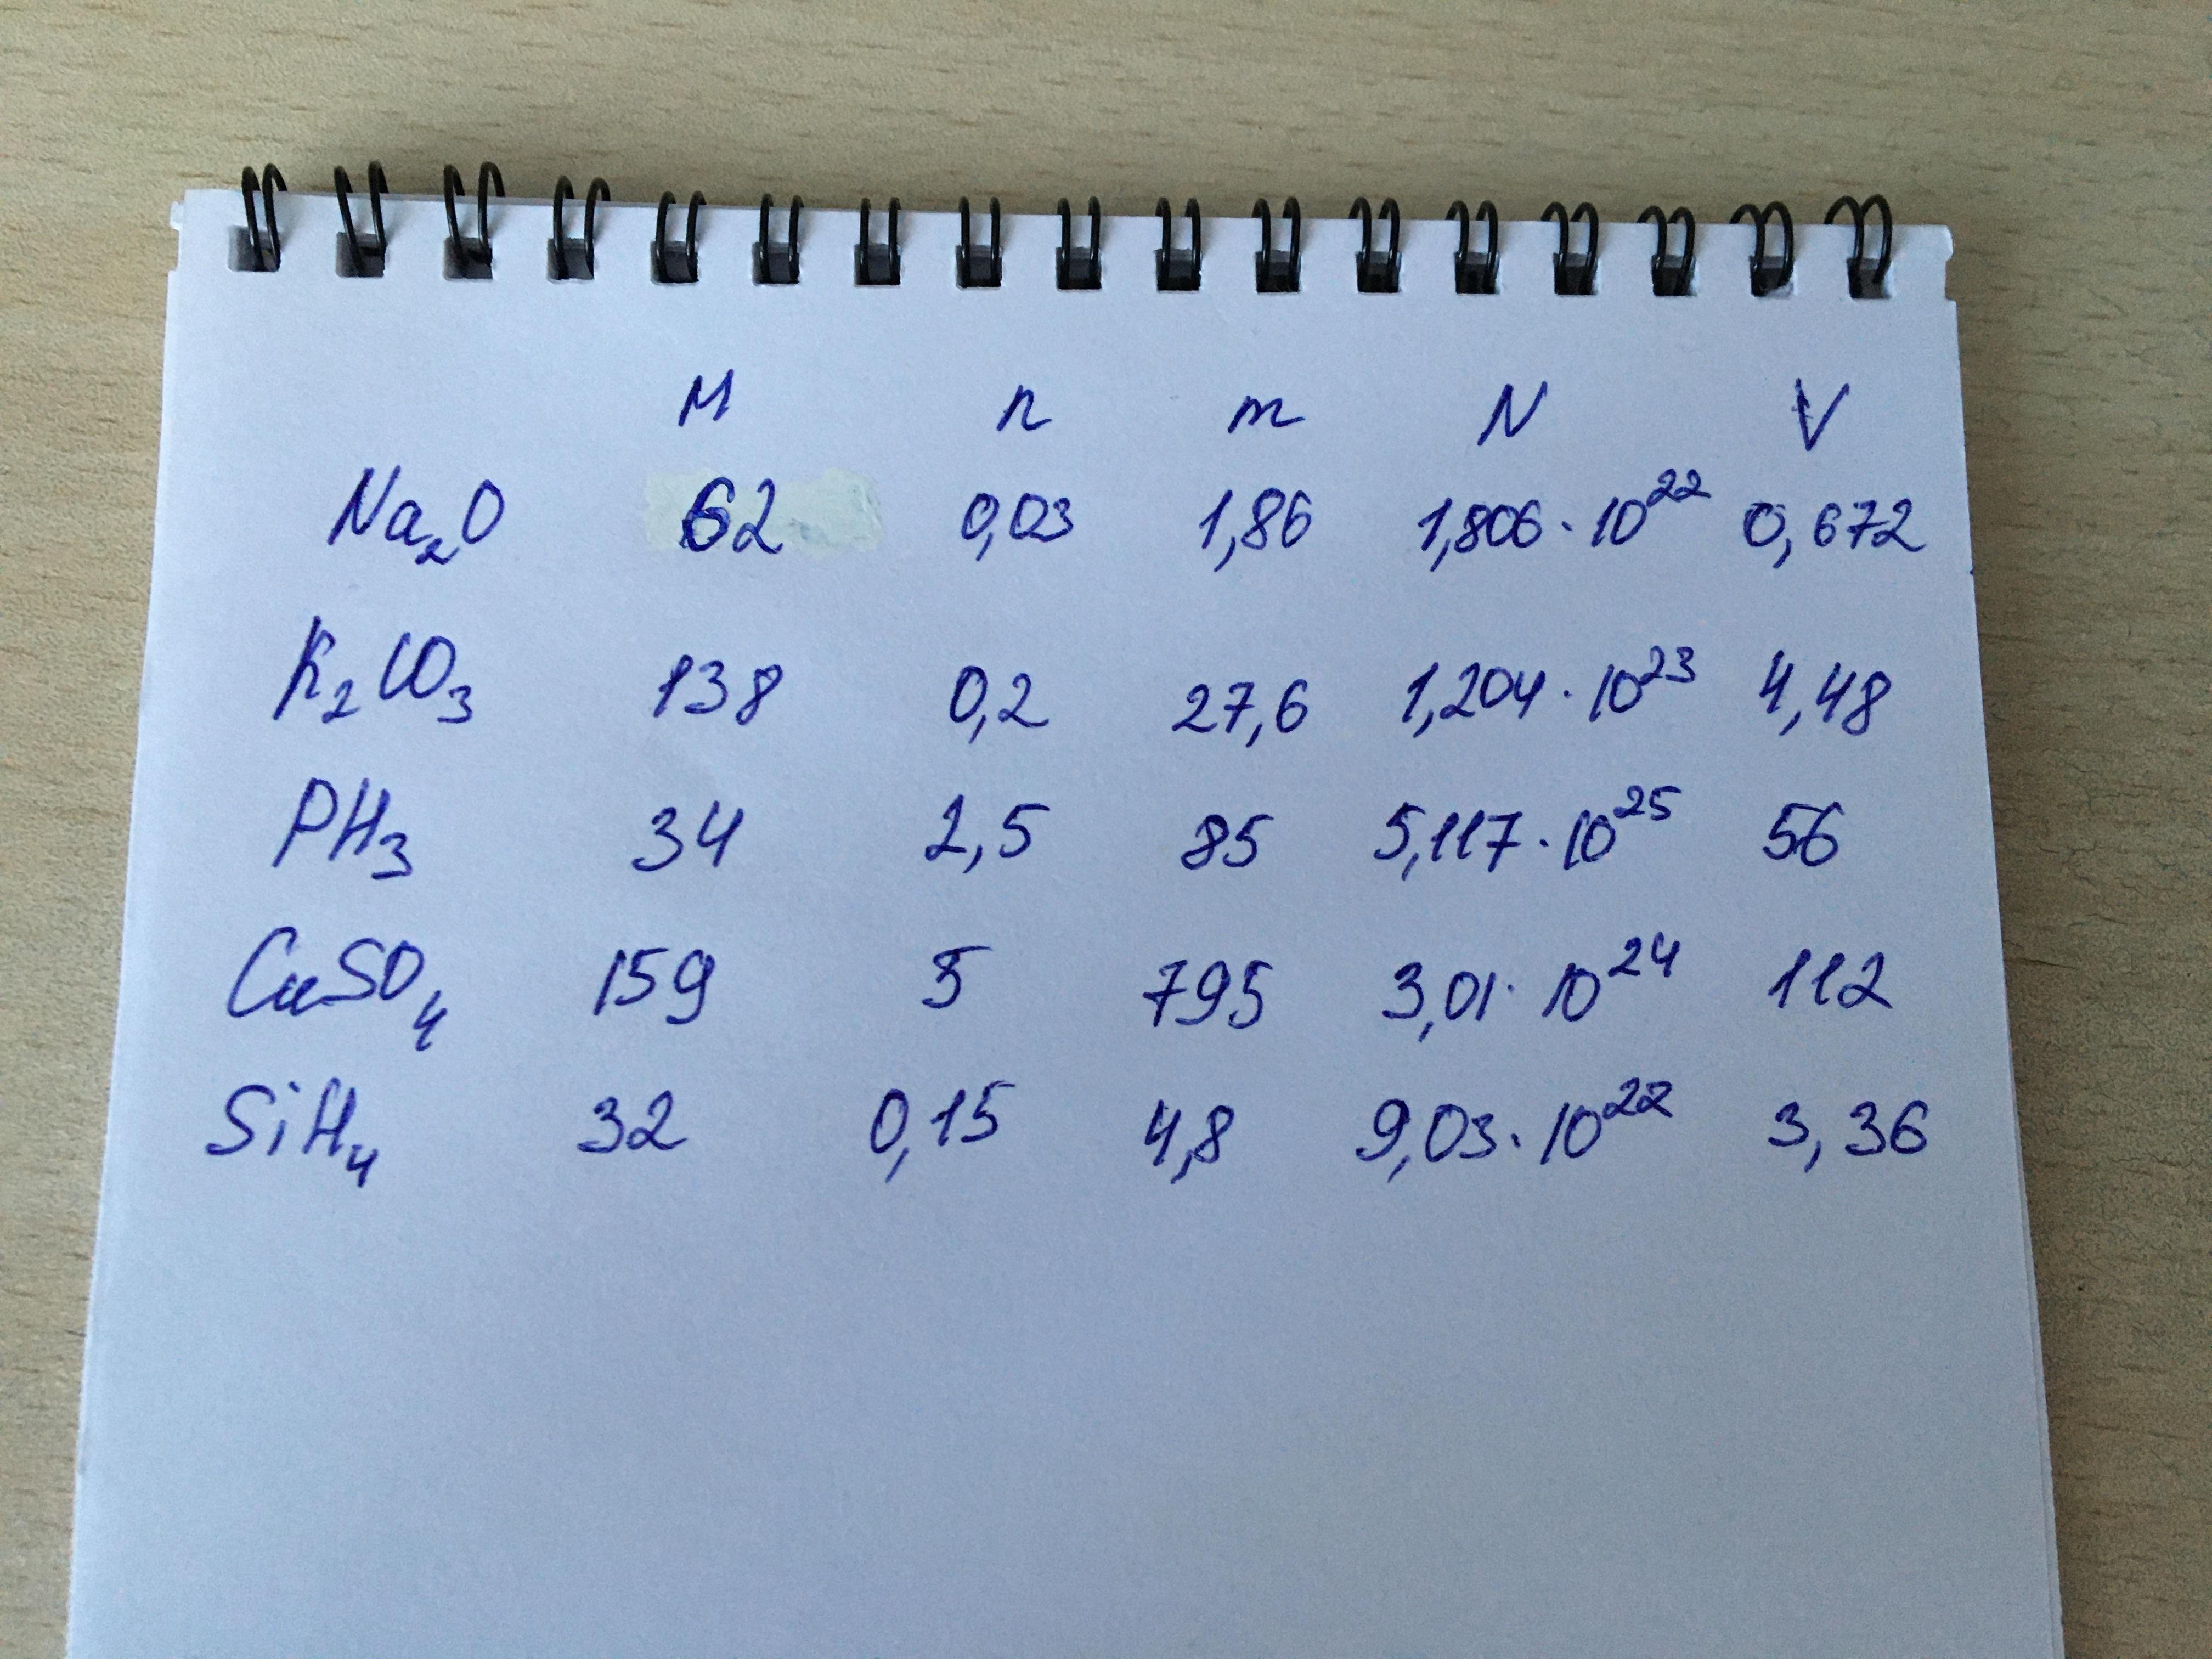 M n m N V
Na₂O 62 0,03 1,86 1,806·10²² 0,672
K₂CO₃ 138 0,2 27,6 1,204·10²³ 4,48
PH₃ 34 2,5 85 5,117·10²⁵ 56
CuSO₄ 159 5 795 3,01·10²⁴ 112
SiH₄ 32 0,15 4,8 9,03·10²² 3,36